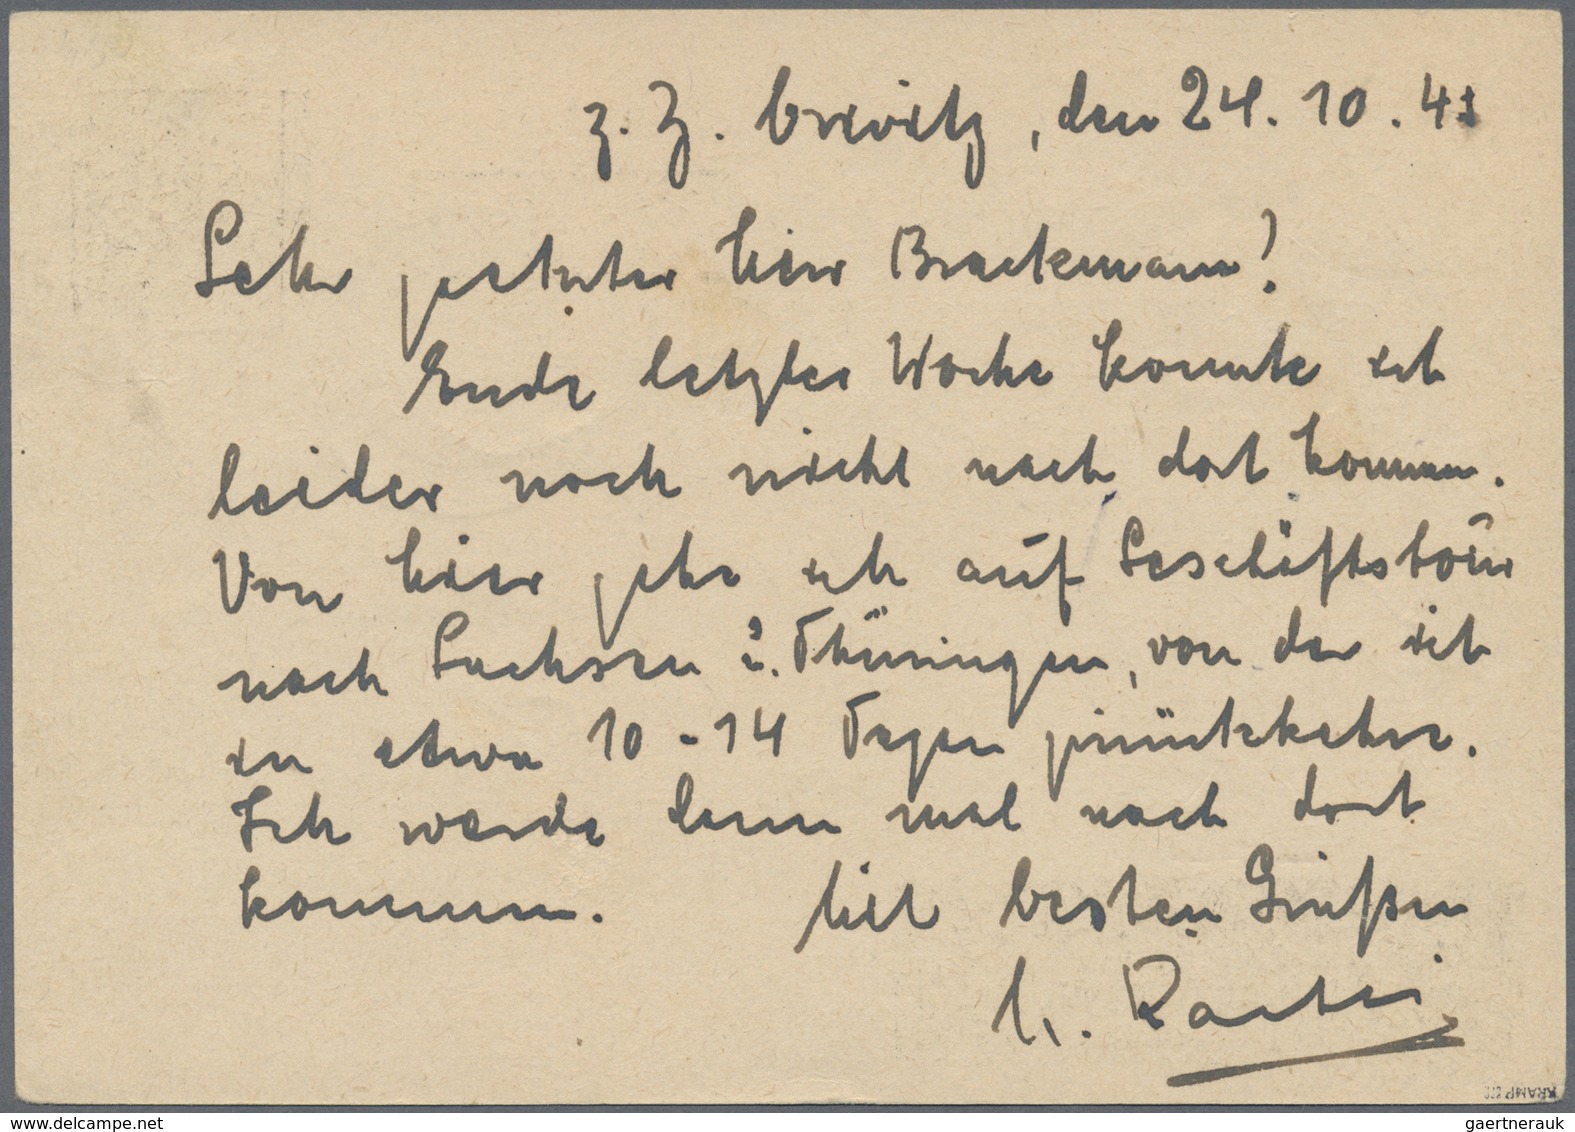 z. Z. Crivitz, den 24. 10. 41
Sehr geehrter Herr Brackmann!
Ende letzter Woche konnte ich
leider noch nicht nach dort kommen.
Von hier gehe ich auf Geschäftstour
nach Sachsen u. Thüringen, von der ich
in etwa 10-14 Tagen zurückkehre.
Ich werde dann mal nach dort
kommen. Mit besten Grüßen
delcampe.net
gaertnerauk